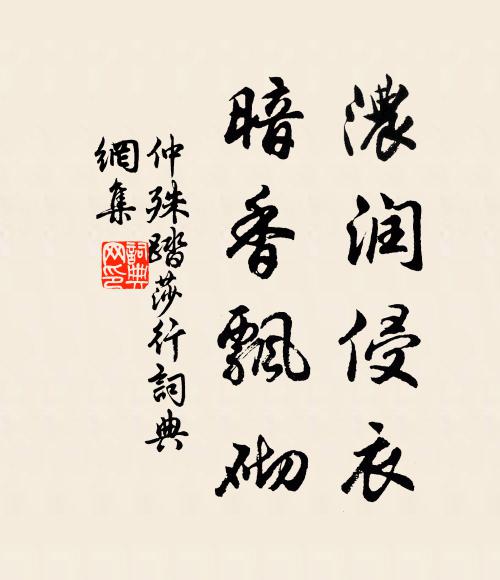 濃润侵衣
暗香飄砌
仲殊踏莎行詞典
網集
詞典
网印